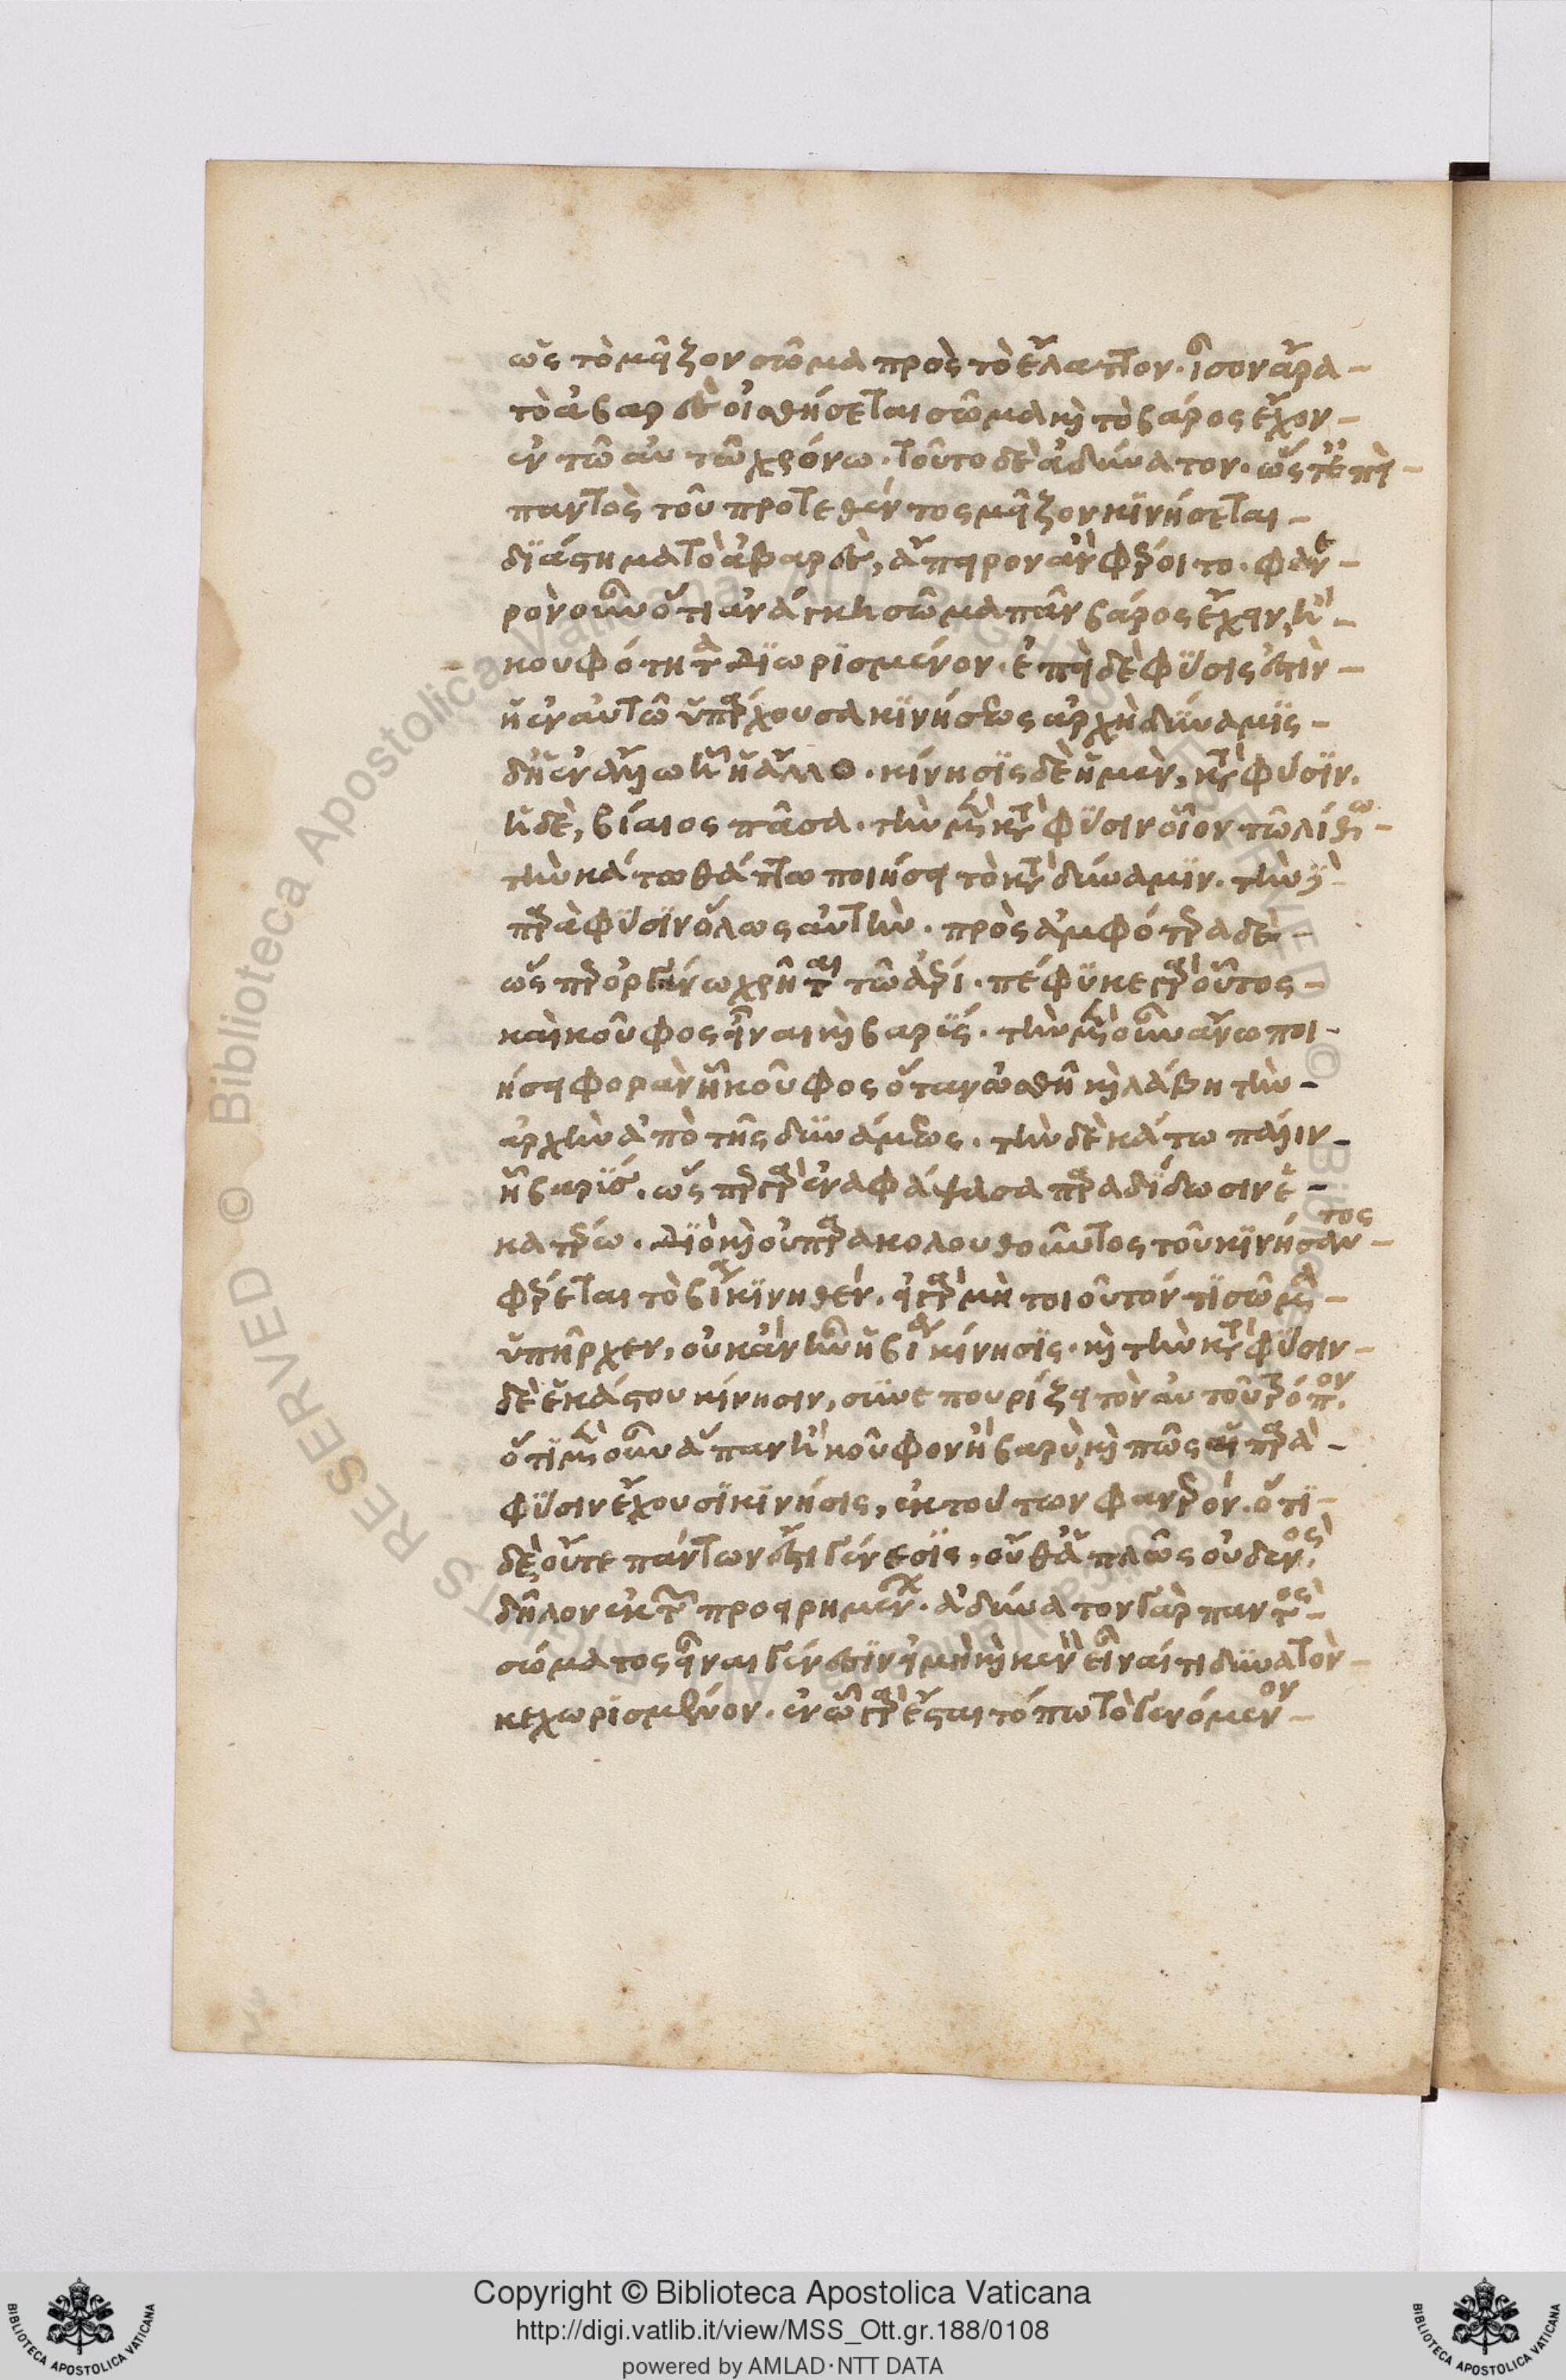 ὡς τὸ μεῖζον σῶμα πρὸς τὸ ἔλαττον. ἴσον ἄρα
τὸ ἀβαρὲς οἰσθήσεται σῶμα καὶ τὸ βάρος ἔχον
ἐν τῶ αὐτῶ χρόνω. τοῦτο δὲ ἀδύνατον. ὥστ' ἐπεὶ
παντὸς τοῦ προτεθέντος μεῖζον κινήσεται
διάστημα τὸ ἀβαρὲς, ἄπειρον ἂν φέροιτο. φανε
ρὸν οὖν ὅτι ἀνάγκη σῶμα πᾶν βάρος ἔχειν, ἢ
κουφότητα διωρισμένον. ἐπεὶ δὲ φύσις ἐστὶν
ἡ ἐν αὐτῶ ὑπάρχουσα κινήσεως ἀρχὴ δύναμις
δ' ἡ ἐν ἄλλω ἢ ἧ ἄλλο. κίνησις δὲ ἡ μὲν, κατὰ φύσιν.
ἡ δὲ, βίαιος πᾶσα. τὴν μὲν κατὰ φύσιν οἷον τῶ λίθω
τὴν κάτω θάττω ποιήσει τὸ κατὰ δύναμιν. τὴν δὲ
παρὰ φύσιν ὅλως αὐτήν. πρὸς ἀμφότερα δὲ
ὥσπερ ὀργάνω χρῆται τῶ ἀέρι. πέφυκε γὰρ οὗτος
καὶ κοῦφος εἶναι καὶ βαρύς. τὴν μὲν οὖν ἄνω ποι
ήσει φορὰν ἧ κοῦφος ὅταν ὠσθῆ καὶ λάβη τὴν
ἀρχὴν ἀπὸ τῆς δυνάμεως. τὴν δὲ κάτω πάλιν
ἧ βαρύς. ὥσπερ γὰρ ἐναφάψασα παραδίδωσιν ἑ
κατέρω. διὸ καὶ οὐ παρακολουθοῦντος τοῦ κινήσαντος
φέρεται τὸ βία κινηθέν. εἰ γὰρ μὴ τοιοῦτόν τι σῶμα
ὑπῆρχεν, οὐκ ἂν ἦν ἡ βία κίνησις. καὶ τὴν κατὰ φύσιν
δὲ ἑκάστου κίνησιν, συνεπουρίζει τὸν αὐτὸν τρόπον.
ὅτι μὲν οὖν ἅπαν ἢ κοῦφον ἢ βαρὺ, καὶ πῶς αἱ παρὰ
φύσιν ἔχουσι κινήσεις, ἐκ τούτων φανερόν. ὅτι
δὲ, οὔτε πάντων ἐστὶ γένεσις, οὔθ' ἁπλῶς οὐδενὸς,
δῆλον ἐκ τῶν προειρημένων. ἀδύνατον γὰρ παντὸς
σώματος εἶναι γένεσιν εἰ μὴ καὶ κενὸν εἶναί τι δυνατὸν
κεχωρισμένον. ἐν ὧ γὰρ ἔσται τόπω τὸ γενόμενον
Copyright © Biblioteca Apostolica Vaticana
http://digi.vatlib.it/view/MSS_Ott.gr.188/0108
powered by AMLAD·NTT DATA